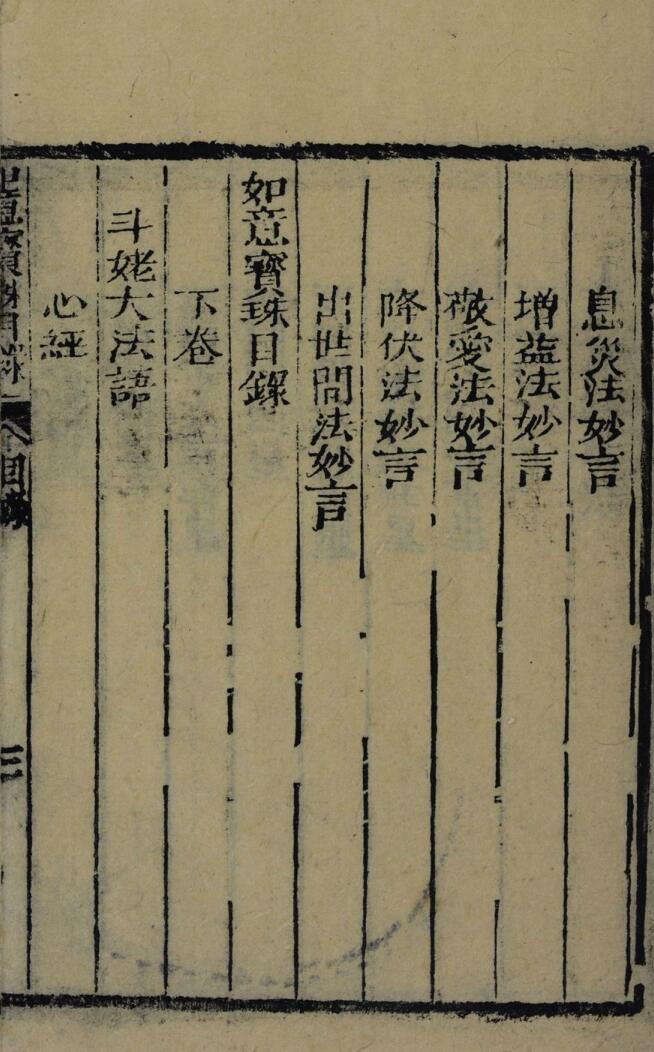 息災法妙言
增益法妙言
敬愛法妙言
降伏法妙言
出世間法妙言
如意寶珠目錄
下卷
斗姥大法語
心經
如意寶珠目錄
目錄
三